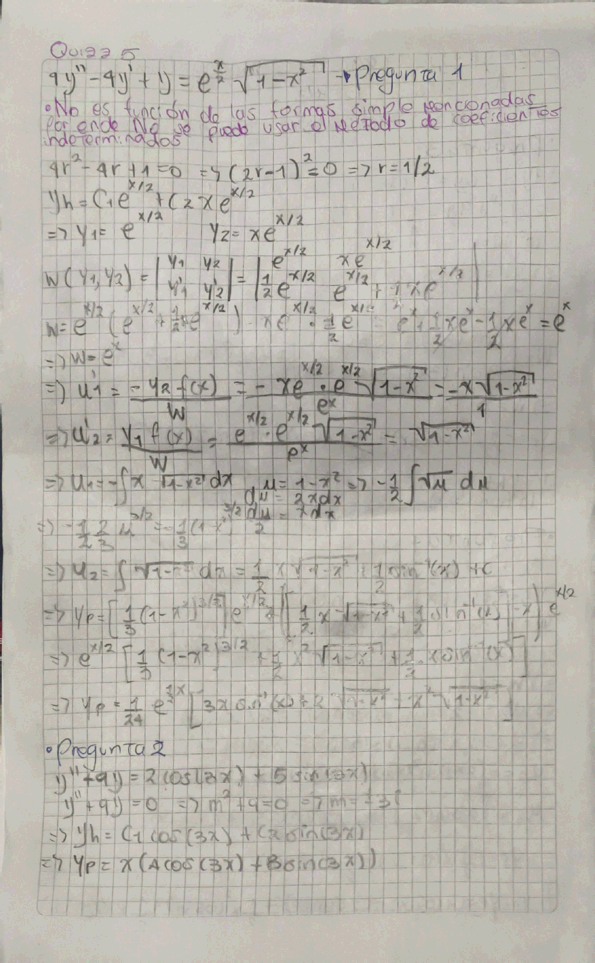 Quizz 5
4y'' - 4y' + y = e^{x/2} √(1-x²) → Pregunta 1
• No es función de las formas simple mencionadas
por ende No se puede usar el Método de coeficientes
indeterminados
4r² - 4r + 1 = 0 => (2r-1)² = 0 => r = 1/2
yh = C1 e^{x/2} + C2 x e^{x/2}
=> y1 = e^{x/2} y2 = x e^{x/2}
W(y1, y2) = | y1 y2 | = | e^{x/2} x e^{x/2} |
| y'1 y'2 | | 1/2 e^{x/2} e^{x/2} + 1/2 x e^{x/2} |
w = e^{x/2} (e^{x/2} + 1/2 x e^{x/2}) x e^{x/2} · 1/2 e^{x/2} = e^x + 1/2 x e^x - 1/2 x e^x = e^x
=> W = e^x
=> u'1 = -y2 f(x) / W = - x e^{x/2} · e^{x/2} √(1-x²) / e^x = -x √(1-x²) / 1
=> u'2 = y1 f(x) / W = e^{x/2} · e^{x/2} √(1-x²) / e^x = √(1-x²)
=> u1 = -∫ x √(1-x²) dx u = 1-x² => -1/2 ∫ √u du
du = 2x dx
du/2 = x dx
=> -1/2 2/3 u^{3/2} = -1/3 (1-x²)^{3/2}
=> u2 = ∫ √(1-x²) dx = 1/2 x √(1-x²) + 1/2 sin⁻¹(x) + C
=> yp = [1/3 (1-x²)^{3/2}] e^{x/2} + [1/2 x √(1-x²) + 1/2 sin⁻¹(x)] x e^{x/2}
=> e^{x/2} [1/3 (1-x²)^{3/2} + 1/2 x² √(1-x²) + 1/2 x sin⁻¹(x)]
=> yp = 1/24 e^{1/2 x} [3x sin⁻¹(x) + 2 √(1-x²) + x² √(1-x²)]
• Pregunta 2
y'' + 9y = 2 cos(3x) + 5 sin(3x)
y'' + 9y = 0 => m² + 9 = 0 => m = ±3i
=> yh = C1 cos(3x) + C2 sin(3x)
=> yp = x (A cos(3x) + B sin(3x))